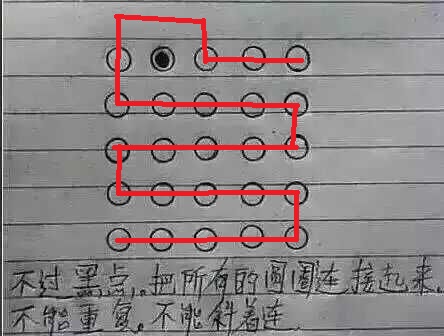 不过黑点,把所有的圆圈连接起来,
不能重复,不能斜着连.